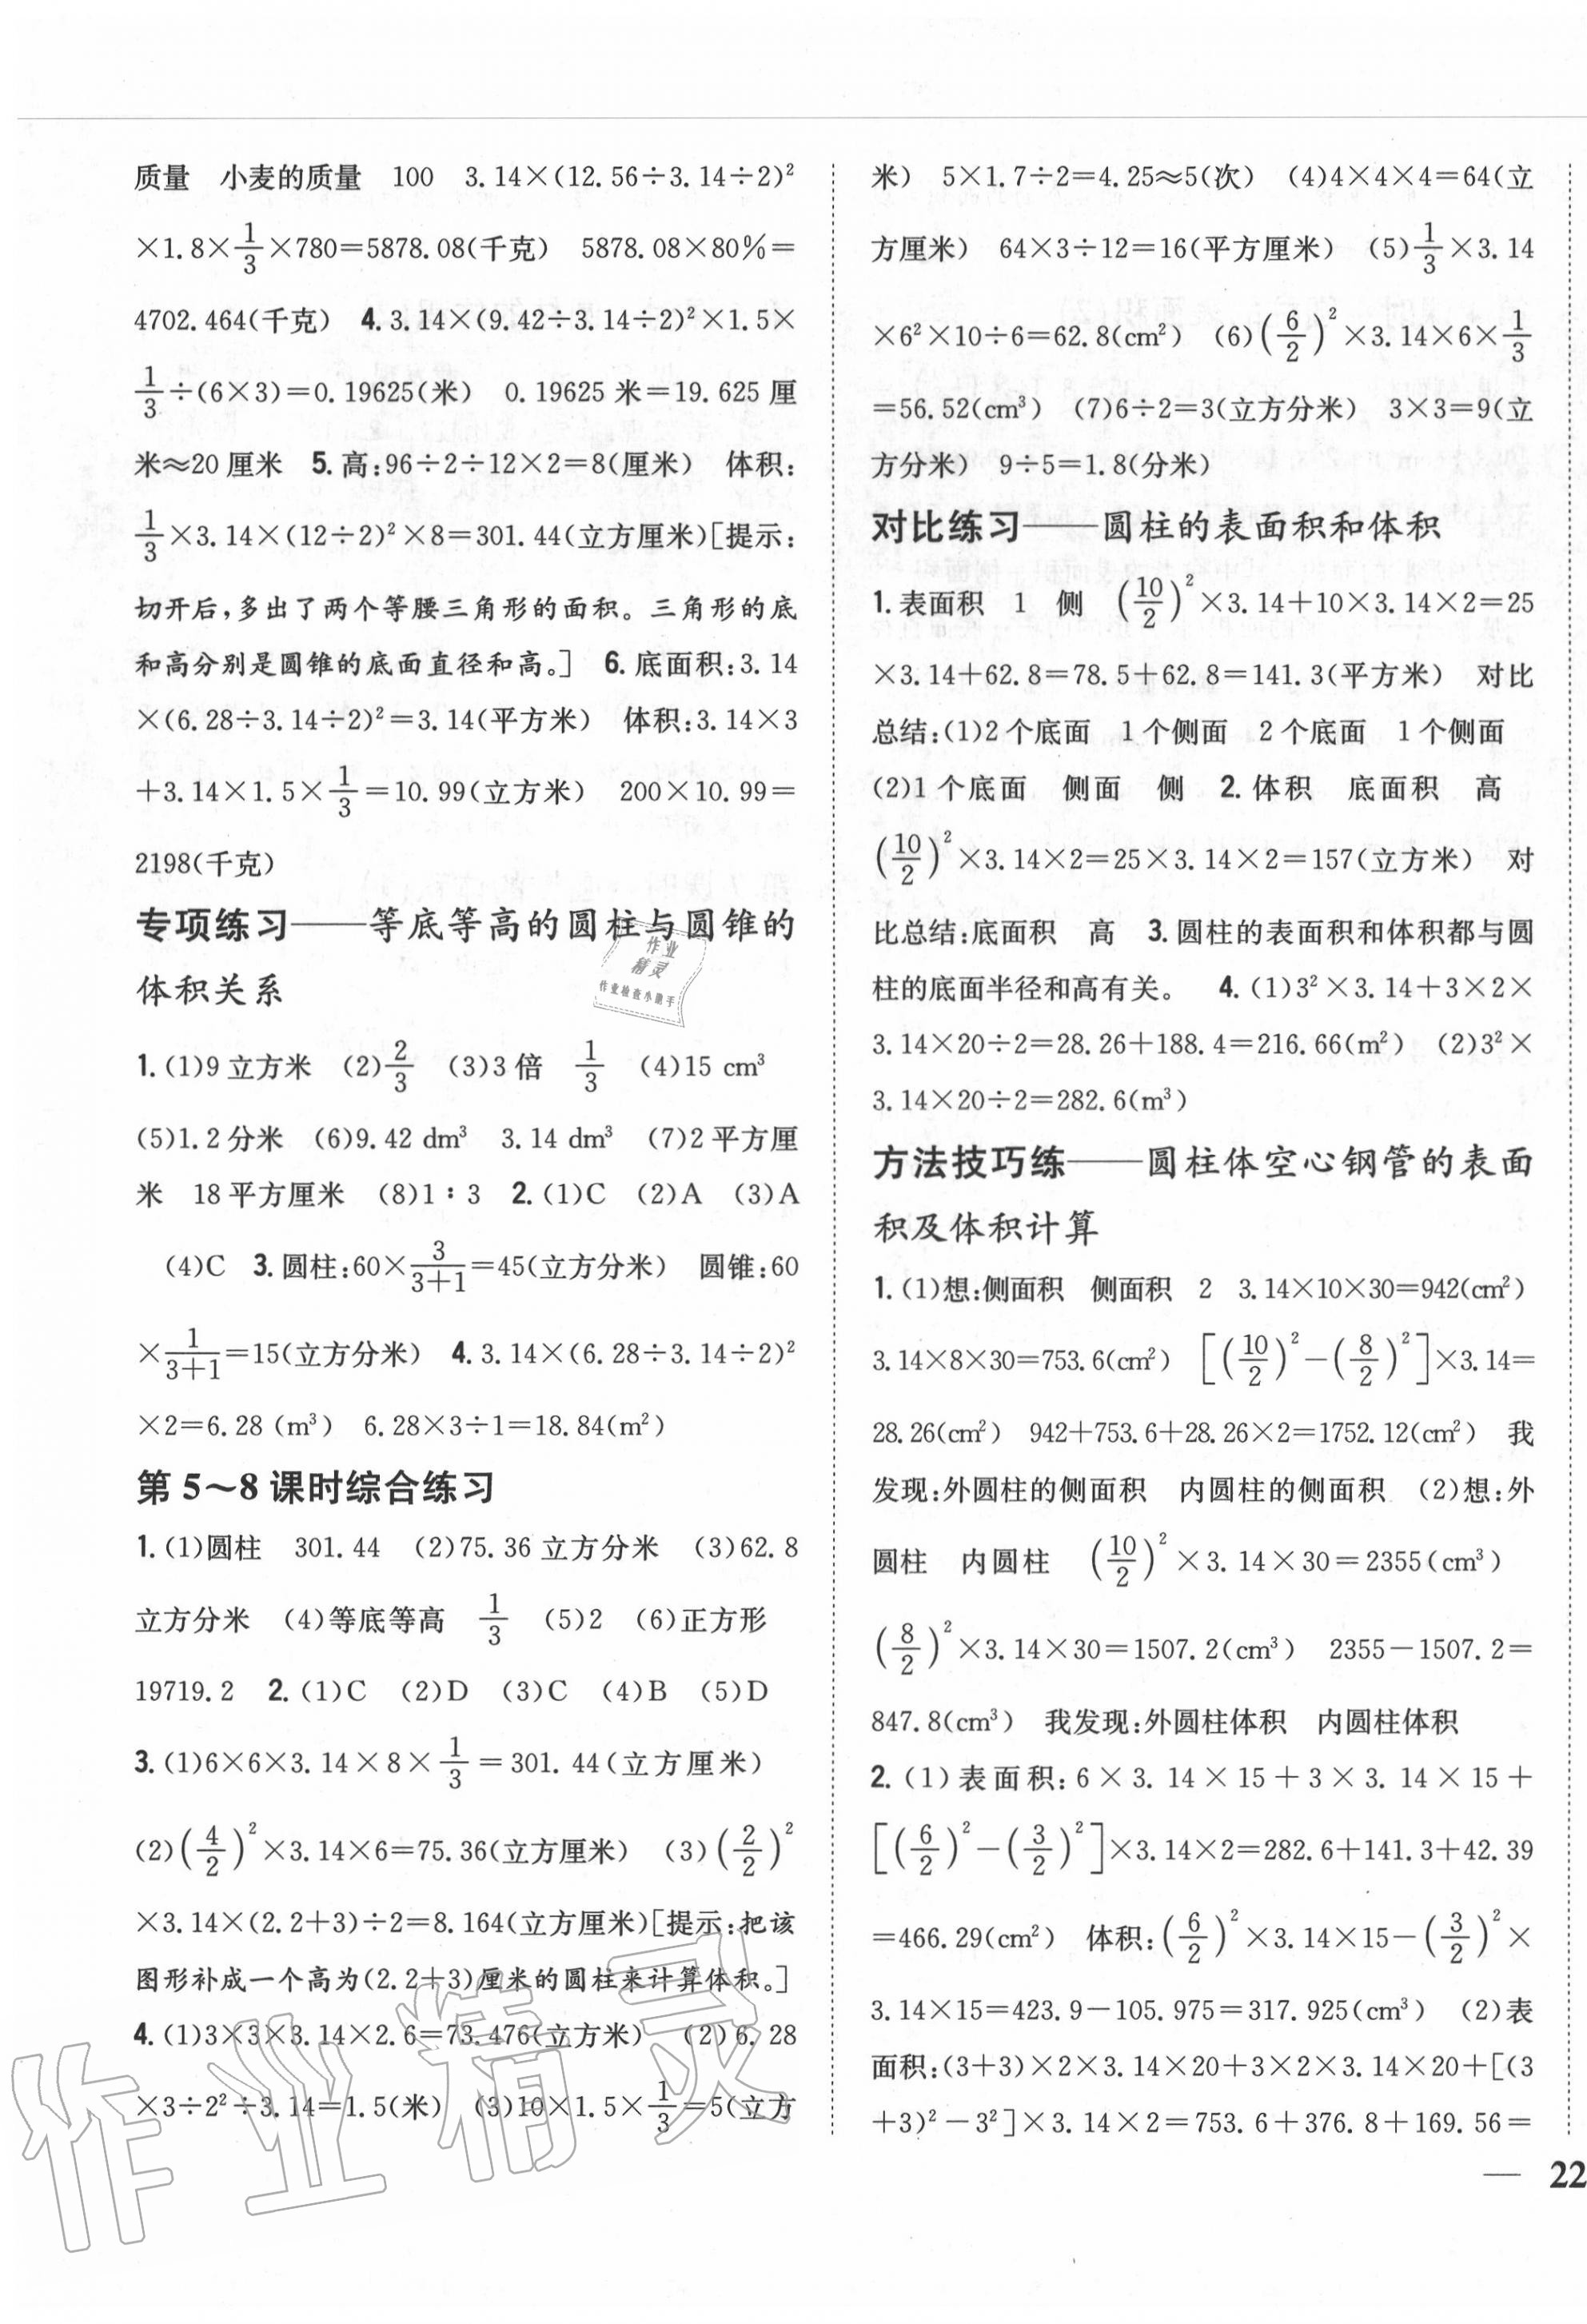 质量 小麦的质量 100 3.14×(12.56÷3.14÷2)²
×1.8×1/3×780=5878.08(千克) 5878.08×80%=
4702.464(千克) 4.3.14×(9.42÷3.14÷2)²×1.5×
1/3÷(6×3)=0.19625(米) 0.19625米=19.625厘
米≈20厘米 5.高:96÷2÷12×2=8(厘米) 体积:
1/3×3.14×(12÷2)²×8=301.44(立方厘米)[提示:
切开后,多出了两个等腰三角形的面积。三角形的底
和高分别是圆锥的底面直径和高。] 6.底面积:3.14
×(6.28÷3.14÷2)²=3.14(平方米) 体积:3.14×3
+3.14×1.5×1/3=10.99(立方米) 200×10.99=
2198(千克)
专项练习——等底等高的圆柱与圆锥的
体积关系
1.(1)9立方米 (2)2/3 (3)3倍 1/3 (4)15 cm³
(5)1.2分米 (6)9.42 dm³ 3.14 dm³ (7)2平方厘
米 18平方厘米 (8)1∶3 2.(1)C (2)A (3)A
(4)C 3.圆柱:60×3/(3+1)=45(立方分米) 圆锥:60
×1/(3+1)=15(立方分米) 4.3.14×(6.28÷3.14÷2)²
×2=6.28 (m³) 6.28×3÷1=18.84(m²)
第5~8课时综合练习
1.(1)圆柱 301.44 (2)75.36立方分米 (3)62.8
立方分米 (4)等底等高 1/3 (5)2 (6)正方形
19719.2 2.(1)C (2)D (3)C (4)B (5)D
3.(1)6×6×3.14×8×1/3=301.44(立方厘米)
(2)(4/2)²×3.14×6=75.36(立方厘米) (3)(2/2)²
×3.14×(2.2+3)÷2=8.164(立方厘米)[提示:把该
图形补成一个高为(2.2+3)厘米的圆柱来计算体积。]
4.(1)3×3×3.14×2.6=73.476(立方米) (2)6.28
×3÷2²÷3.14=1.5(米) (3)10×1.5×1/3=5(立方
米) 5×1.7÷2=4.25≈5(次) (4)4×4×4=64(立
方厘米) 64×3÷12=16(平方厘米) (5)1/3×3.14
×6²×10÷6=62.8(cm²) (6)(6/2)²×3.14×6×1/3
=56.52(cm³) (7)6÷2=3(立方分米) 3×3=9(立
方分米) 9÷5=1.8(分米)
对比练习——圆柱的表面积和体积
1.表面积 1 侧 (10/2)²×3.14+10×3.14×2=25
×3.14+62.8=78.5+62.8=141.3(平方米) 对比
总结:(1)2个底面 1个侧面 2个底面 1个侧面
(2)1个底面 侧面 侧 2.体积 底面积 高
(10/2)²×3.14×2=25×3.14×2=157(立方米) 对
比总结:底面积 高 3.圆柱的表面积和体积都与圆
柱的底面半径和高有关。 4.(1)3²×3.14+3×2×
3.14×20÷2=28.26+188.4=216.66(m²) (2)3²×
3.14×20÷2=282.6(m³)
方法技巧练——圆柱体空心钢管的表面
积及体积计算
1.(1)想:侧面积 侧面积 2 3.14×10×30=942(cm²)
3.14×8×30=753.6(cm²) [(10/2)²-(8/2)²]×3.14=
28.26(cm²) 942+753.6+28.26×2=1752.12(cm²) 我
发现:外圆柱的侧面积 内圆柱的侧面积 (2)想:外
圆柱 内圆柱 (10/2)²×3.14×30=2355(cm³)
(8/2)²×3.14×30=1507.2(cm³) 2355-1507.2=
847.8(cm³) 我发现:外圆柱体积 内圆柱体积
2.(1)表面积:6×3.14×15+3×3.14×15+
[(6/2)²-(3/2)²]×3.14×2=282.6+141.3+42.39
=466.29(cm²) 体积:(6/2)²×3.14×15-(3/2)²×
3.14×15=423.9-105.975=317.925(cm³) (2)表
面积:(3+3)×2×3.14×20+3×2×3.14×20+[(3
+3)²-3²]×3.14×2=753.6+376.8+169.56=
— 22
作业
精灵
作业检查小助手
作业精灵